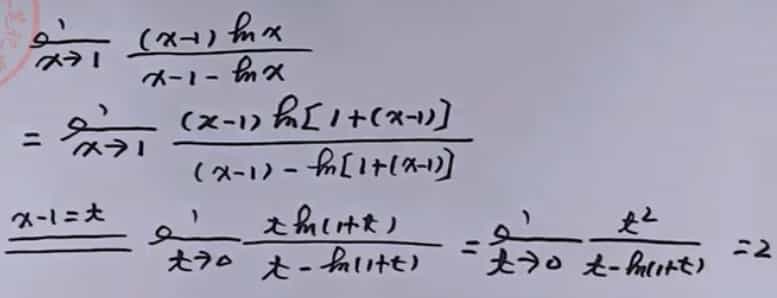 lim x→1 (x-1) ln x / x-1-ln x
= lim x→1 (x-1) ln[1+(x-1)] / (x-1) - ln[1+(x-1)]
x-1=t lim t→0 t ln(1+t) / t - ln(1+t) = lim t→0 t² / t - ln(1+t) = 2